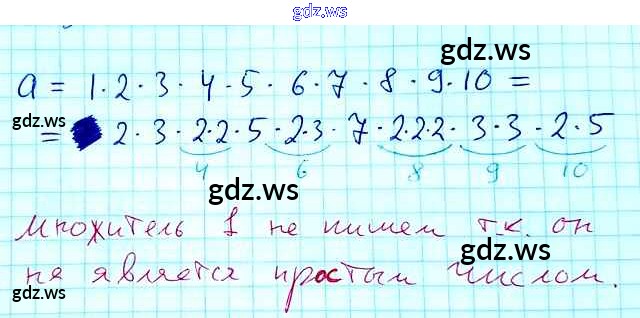 gdz.ws
gdz.ws
a = 1·2·3·4·5·6·7·8·9·10 =
gdz.ws
= 2·3·2·2·5·2·3·7·2·2·2·3·3·2·5
4 6 8 9 10
gdz.ws
множитель 1 не пишем т.к. он
gdz.ws
не является простым числом.
gdz.ws